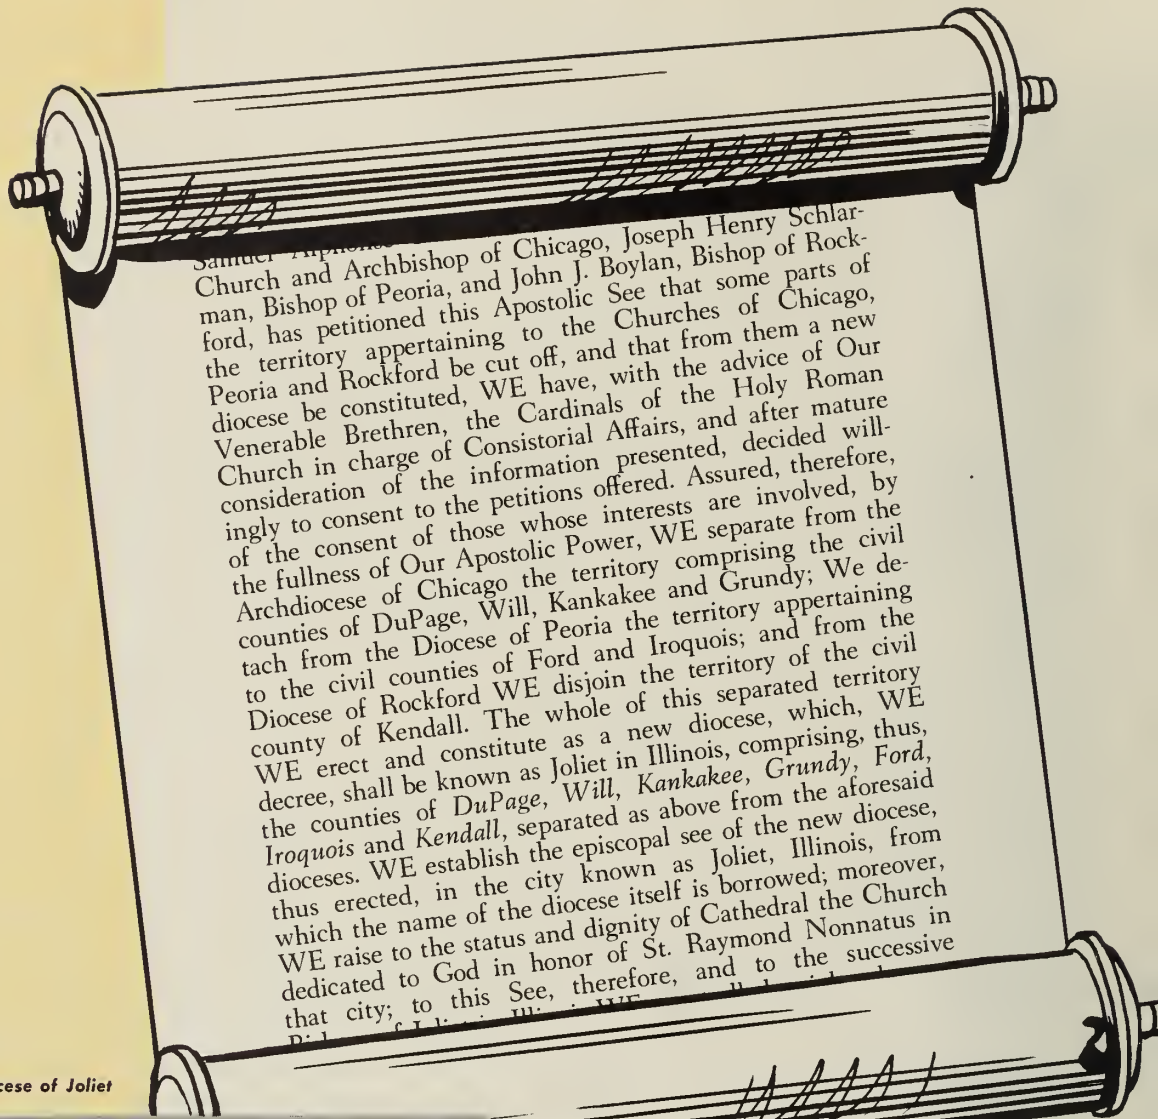 Samuel Alphonse
Church and Archbishop of Chicago, Joseph Henry Schlar-
man, Bishop of Peoria, and John J. Boylan, Bishop of Rock-
ford, has petitioned this Apostolic See that some parts of
the territory appertaining to the Churches of Chicago,
Peoria and Rockford be cut off, and that from them a new
diocese be constituted, WE have, with the advice of Our
Venerable Brethren, the Cardinals of the Holy Roman
Church in charge of Consistorial Affairs, and after mature
consideration of the information presented, decided will-
ingly to consent to the petitions offered. Assured, therefore,
of the consent of those whose interests are involved, by
the fullness of Our Apostolic Power, WE separate from the
Archdiocese of Chicago the territory comprising the civil
counties of DuPage, Will, Kankakee and Grundy; We de-
tach from the Diocese of Peoria the territory appertaining
to the civil counties of Ford and Iroquois; and from the
Diocese of Rockford WE disjoin the territory of the civil
county of Kendall. The whole of this separated territory
WE erect and constitute as a new diocese, which, WE
decree, shall be known as Joliet in Illinois, comprising, thus,
the counties of DuPage, Will, Kankakee, Grundy, Ford,
Iroquois and Kendall, separated as above from the aforesaid
dioceses. WE establish the episcopal see of the new diocese,
thus erected, in the city known as Joliet, Illinois, from
which the name of the diocese itself is borrowed; moreover,
WE raise to the status and dignity of Cathedral the Church
dedicated to God in honor of St. Raymond Nonnatus in
that city; to this See, therefore, and to the successive
of Joliet in WE
of Joliet